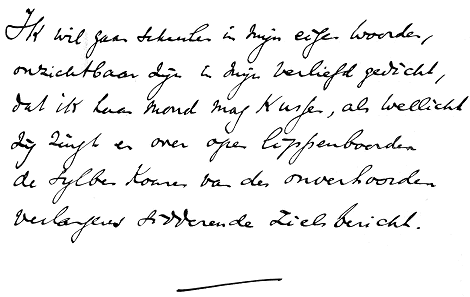 Ik wil gaan schuilen in mijn eigen woorden,
onzichtbaar zijn in mijn verliefd gedicht,
dat ik haar mond mag kussen, als wellicht
zij zingt en over open lippenboorden
de sylben komen van des onverhoorden
verlangens sidderende zielsbericht.